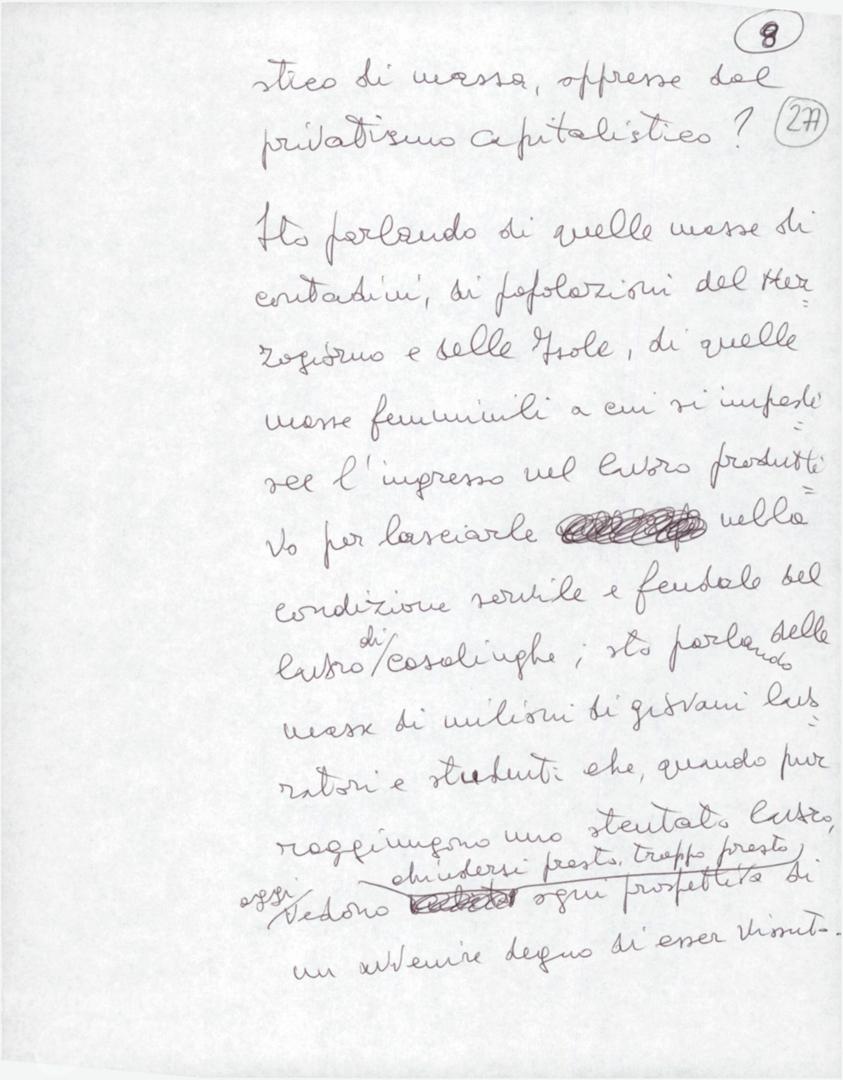 8
stico di massa, oppresse dal
privatismo capitalistico? 277
Sto parlando di quelle masse di
contadini, di popolazioni del Mez=
zogiorno e delle Isole, di quelle
masse femminili a cui si impedi=
sce l'ingresso nel lavoro produtti=
vo per lasciarle nella
condizione servile e feudale del
lavoro di casalinghe; sto parlando delle
masse di milioni di giovani lavo=
ratori e studenti che, quando pur
raggiungono uno stentato lavoro,
chiudersi presto, troppo presto,
oggi vedono ogni prospettiva di
un avvenire degno di esser vissuto.